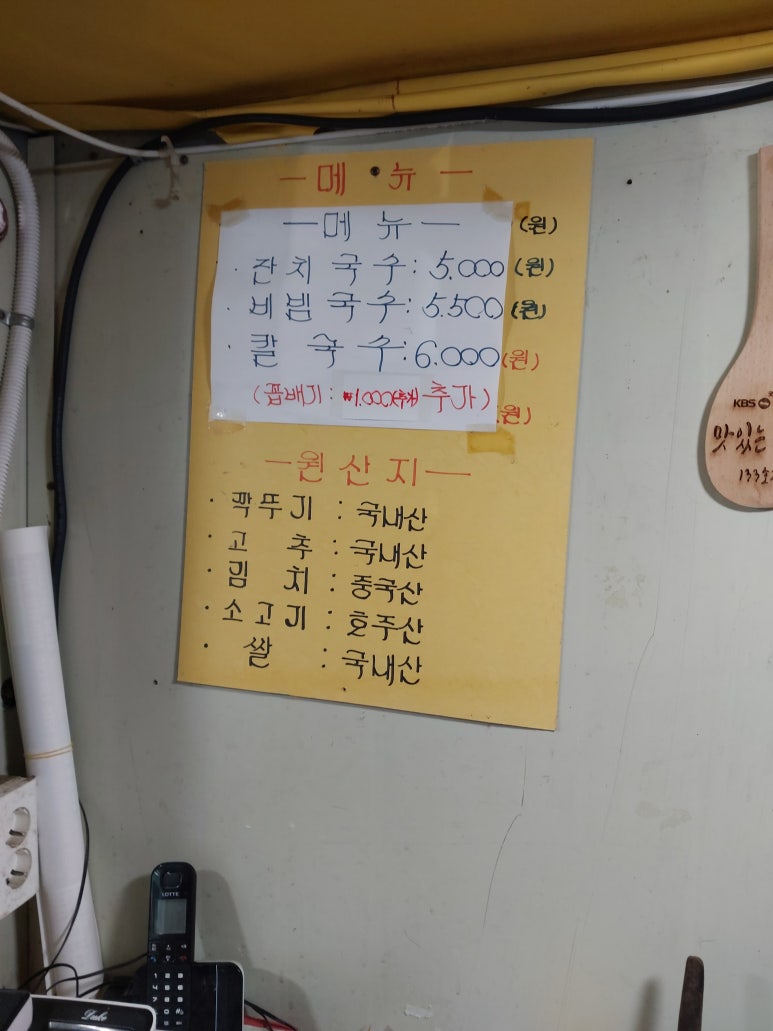 ー메 뉴ー
ー메 뉴ー (원)
· 잔치 국수: 5.000 (원)
· 비빔국수: 5.500 (원)
· 칼 국수: 6.000 (원)
(곱배기: ₩1.000(추가) 추가) 원)
ー원산지ー
· 깍뚜기 : 국내산
· 고 추 : 국내산
· 김 치 : 중국산
· 소고기 : 호주산
· 쌀 : 국내산
KBS
맛있는
LOTTE